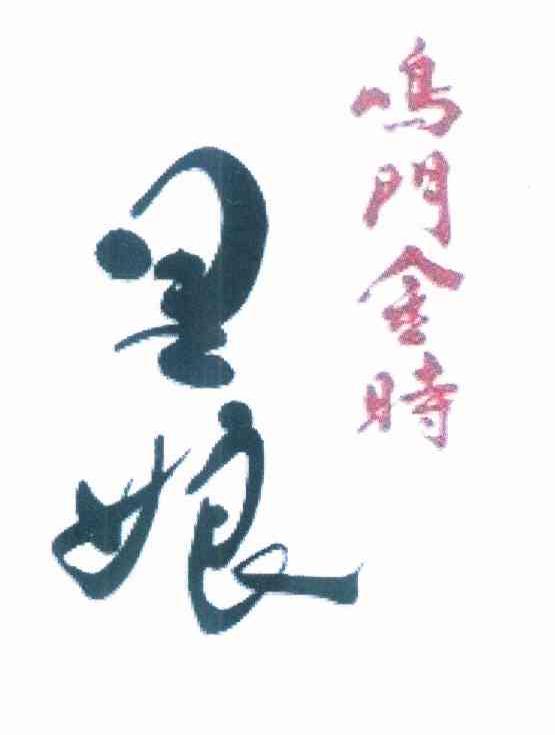 鳴門金時
里娘